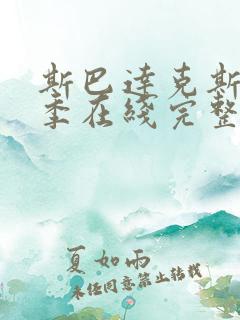 斯巴达克斯
季在线完整
夏如雨
未经同意禁止转载